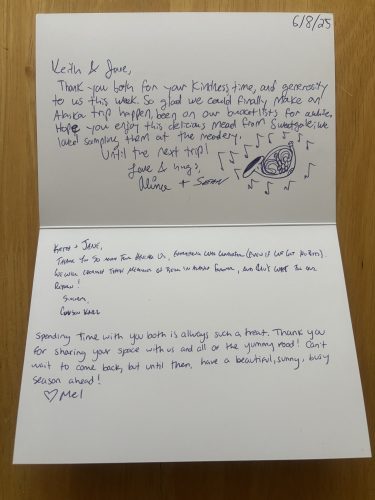 6/8/25
Keith & Jane,
Thank you both for your kindness, time, and generosity
to us this week. So glad we could finally make an
Alaska trip happen, been on our bucket lists for awhile.
Hope you enjoy this delicious mead from Sweetgale; we
loved sampling them at the meadery.
Until the next trip!
Love & hugs,
+
Keith + Jane,
Thank you so much for having us,
We will cherish these memories of
Return!
Sincerely,
Spending time with you both is always such a treat. Thank you
for sharing your space with us and all of the yummy food! Can't
wait to come back, but until then, have a beautiful, sunny, busy
season ahead!
♡ Mel